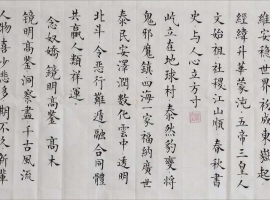 維安穩世界裕成東嶽起
經緯升華蒙沌五帝三皇人
文始祖社稷江山順春秋書
史与人心立方寸
屹立在地球村泰然豹變將
鬼邪魔鎮四海一家福納廣世
泰民安澤潤數化雲中透明
北斗令惡行難遁融合同體
共贏人類祥運
念奴嬌 鏡明高鋻 高木
鏡明高鋻洞察盡千古風流
人物喜少悲多期不久新